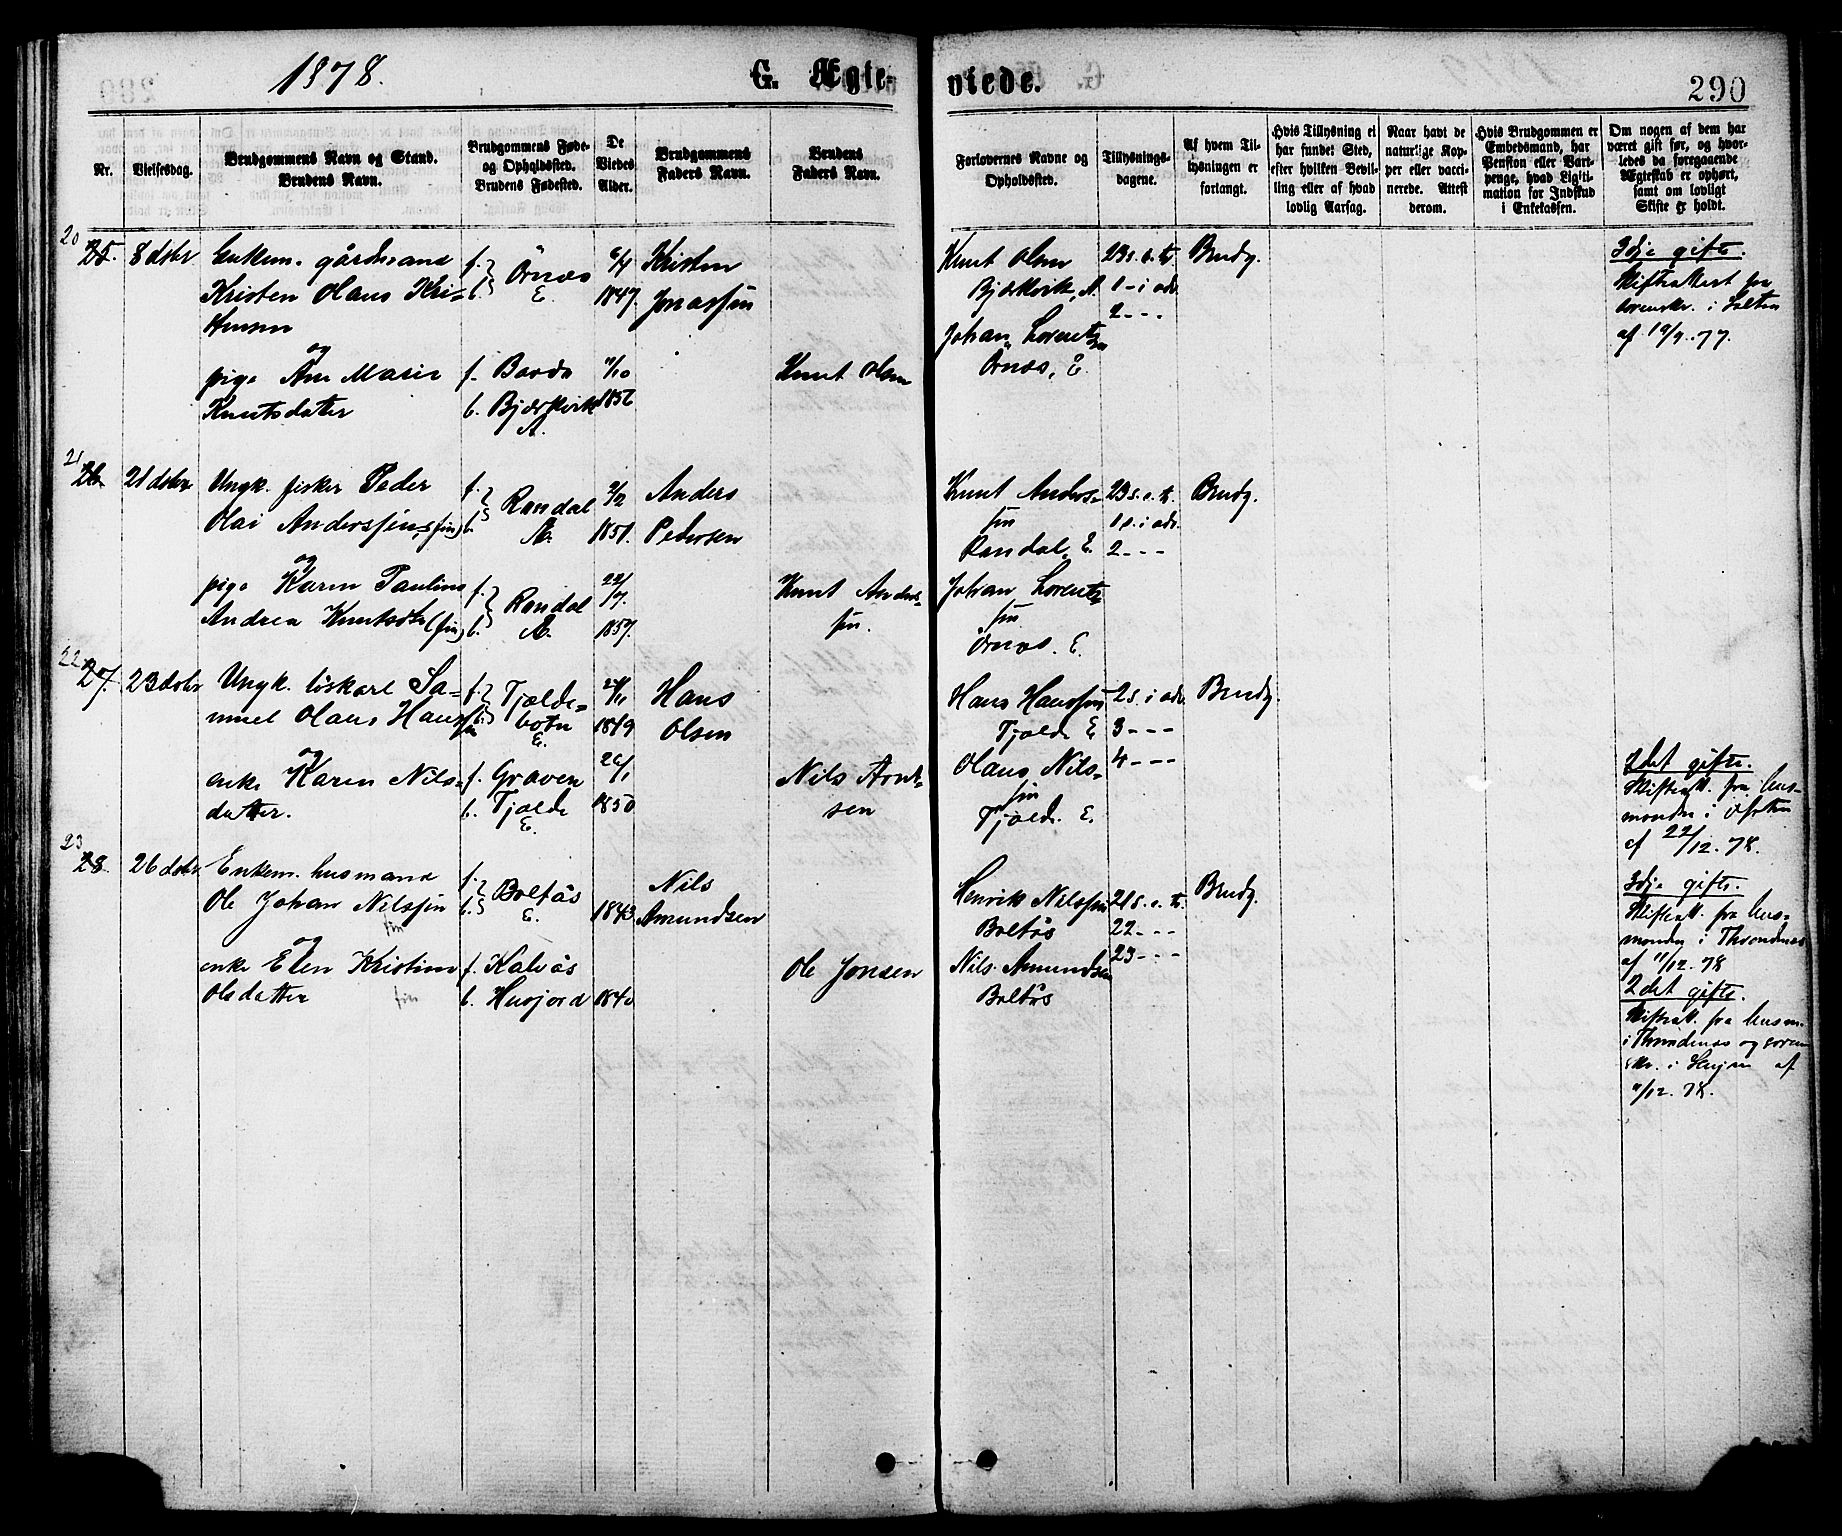 1878.
G. Ægte-
viede.
290
Nr.
Vielsesdag.
Brudgommens Navn og Stand.
Brudens Navn.
Brudgommens Føde-
og Opholdssted.
Brudens Fødested.
De
Viedes
Alder.
Brudgommens
Faders Navn.
Brudens
Faders Navn.
Forlovernes Navne og
Opholdssted.
Tillysnings-
dagene.
Af hvem Til-
lysningen er
forlangt.
Hvis Tillysning ei
har fundet Sted,
efter hvilken Bevil-
ling eller af hvad
lovlig Aarsag.
Naar havt de
naturlige Kop-
per eller vacci-
nerede. Attest
derom.
Hvis Brudgommen er
Embedsmand, har
Pension eller Vart-
penge, hvad Ligiti-
mation for Indskud
i Enkekassen.
Om nogen af dem har
været gift før, og hvor-
ledes da foregaaende
Ægteskab er ophørt,
samt om lovligt
Skifte er holdt.
20
25. 8 dsbr
Enkem. gårdmand
Kristen Olaus Kri-
stensen
og
pige Ane Marie
Knutsdatter
f. } Örnæs
b. } E.
f. Barda
b. Bjærkvik
A.
1847.
/10
1856
Kristen
Jonassen
Knut Olsen
Knut Olsen
Bjærkvik, A.
Johan Lorents
Örnæs, E.
23 s. e. tr.
1 - i adv.
2 - - -
Brudg.
3dje gifte.
Skifteattest fra
sorenskr. i Salten
af 19/9. 77.
21
26 21 dsbr
Ungk. fisker Peder
Olai Anderssen, (fin)
og
pige Karen Pauline
Andrea Knutsdtr (fin)
f. } Randal
b. } A.
f. } Randal
b. } A.
2/2
1851.
22/7.
1857.
Anders
Pedersen
Knut Anders-
sen.
Knut Anders-
sen
Randal, E.
Johan Lorents
sen
Örnæs. E.
23 s. e. tr.
1 s. i adv.
2 - - -
Brudg.
22
27. 23 dsbr
Ungk. löskarl Sa-
muel Olaus Hanssen
og
enke Karen Nils-
datter.
f. } Tjælde-
b. } botn
E.
f. Graven
b. Tjælde
E.
1849
1850
Hans
Olsen
Nils Arnt-
sen
Hans Hanssen
Tjælde E
Olaus Nils-
sen
Tjælde. E.
2 s. i adv.
3 - - -
4 - - -
Brudg.
2det gifte.
Skifteatt. fra lens-
manden i Ofoten
af 22/12. 78.
23
28. 26 dsbr.
Enkem. husmand
Ole Johan Nilssen
fin
og
enke Elen Kristine
Olsdatter fin
f. } Boltås
b. } E.
f. Kalvås
b. Husjord
1843
1840
Nils
Amundsen
Ole Jonsen
Henrik Nilssen
Boltås
Nils Amundsen
Boltås
21 s. e. tr.
22 - - -
23 - - -
Brudg.
3dje gifte.
Skifteatt. fra lens-
manden i Throndenæs
af 11/12. 78
2det gifte.
Skifteatt. fra lensm.
i Throndenæs og soren
skr. i Senjen af
11/12. 78.